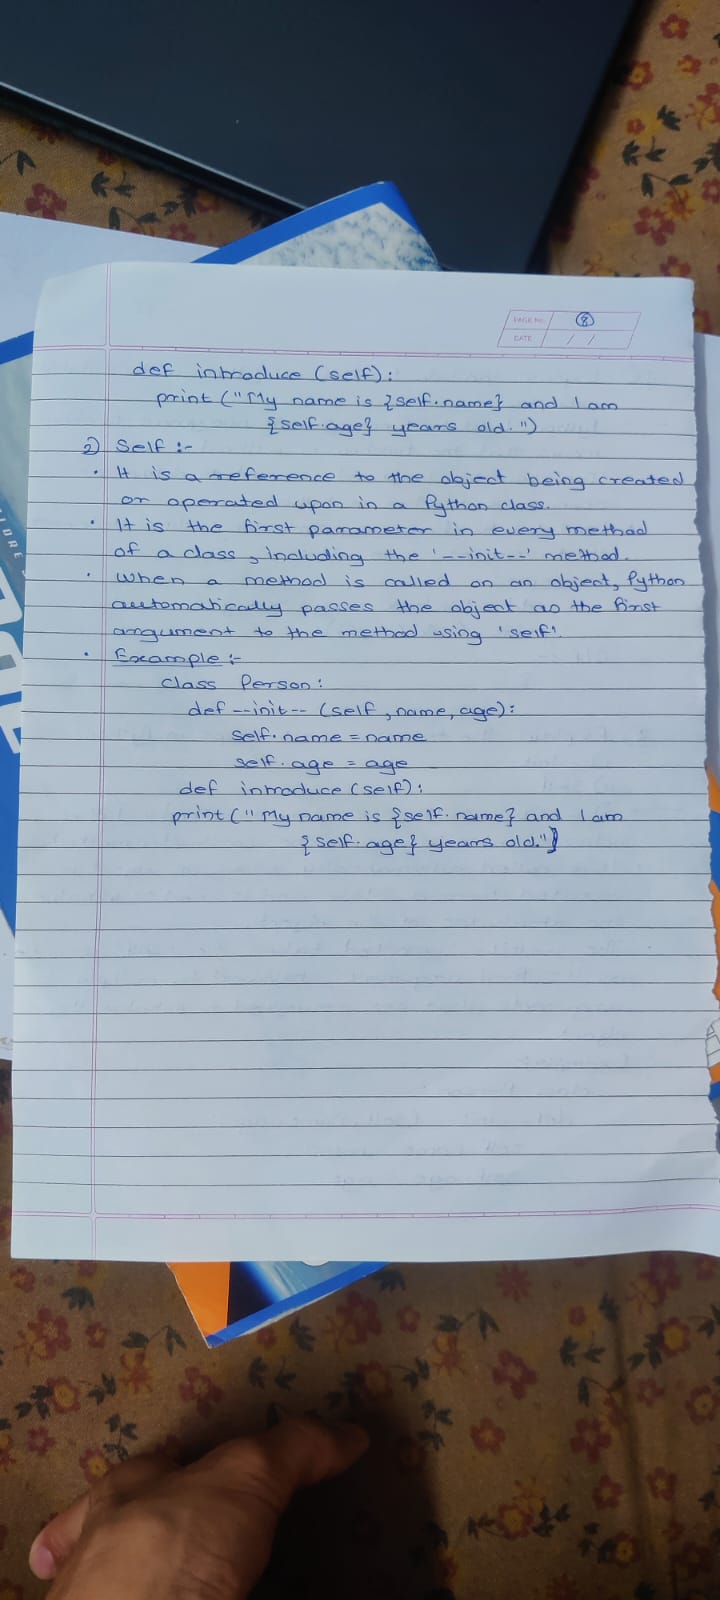 PAGE No. 8
DATE / /
def introduce (self):
print ("My name is {self.name} and I am
{self.age} years old.")
2) Self :-
• It is a reference to the object being created
or operated upon in a Python class.
• It is the first parameter in every method
of a class, including the '--init--' method.
• When a method is called on an object, Python
automatically passes the object as the first
argument to the method using 'self'.
• Example :-
class Person:
def --init-- (self, name, age):
self.name = name
self.age = age
def introduce (self):
print (" My name is {self.name} and I am
{self.age} years old.")